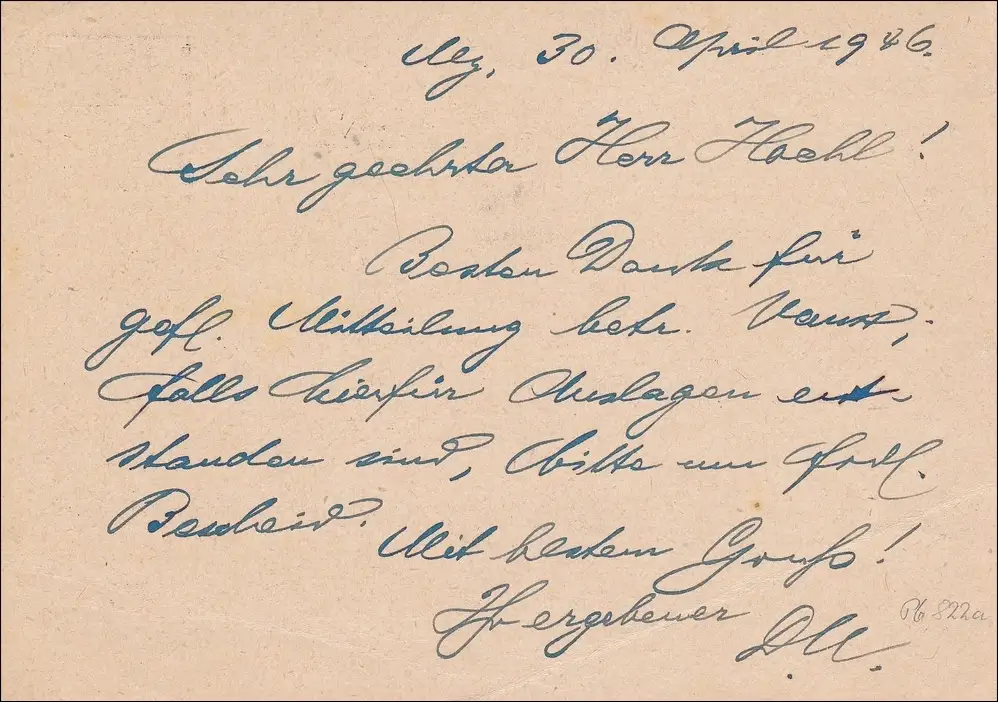 Mz, 30. April 1946.
Sehr geehrter Herr Hoehl!
Besten Dank für
gefl. Mitteilung betr.
falls hierfür Auslagen ent-
standen sind, bitte um frdl.
Bescheid.
Mit bestem Gruß!
Ihr ergebener
D.M.
Pb 822a